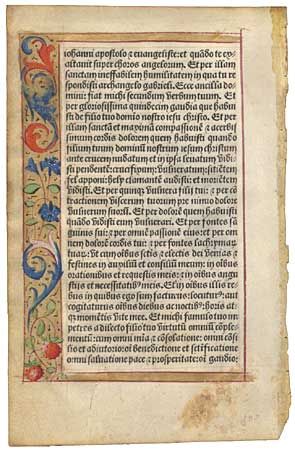 iohanni apostolo ⁊ euangeliste: et quãdo te ex
altauit super choros angelorum. Et per illam
sanctam ineffabilem humilitatem in qua tu re
spondisti archangelo gabrieli. Ecce ancilla do
mini: fiat michi secundum verbum tuum. Et
per gloriosissima quindecim gaudia que habui
sti de filio tuo domino nostro iesu christo. Et per
illam sanctã et maximã compassionẽ ⁊ acerbis
simum cordis dolorem quem habuisti quando
filium tuum dominũ nostrum iesum christum
ante crucem nudatum et in ipsa leuatum vidi
sti pendentẽ: crucifixum: vulneratum: sitientẽ
fel apponi: hely clamantẽ audisti: et moriẽtem
vidisti. Et per quinqȝ vulnera filii tui: ⁊ per cõ
tractionem viscerum tuorum pre nimio dolore
vulnerum suorũ. Et per dolorẽ quem habuisti
quãdo vidisti eum vulnerari. Et per fontes sã
guinis sui: ⁊ per omnẽ passionẽ eius: et per om
nem dolorẽ cordis tui: ⁊ per fontes lachrymaꝝ
tuaꝝ: vt cum oĩbus sctis ⁊ electis dei venias ⁊
festines in auxiliũ et consiliũ meum: in oĩbus
orationibus et requestis meis: ⁊ in oĩbus angu
stiis et necessitatibꝰ meis. Et ĩ oĩbus illis re
bus in quibus ego sum facturus: locuturꝰ: aut
cogitaturus oĩbus diebus ac noctibꝰ: horis atqȝ
momẽtis vite mee. Et michi famulo tuo im
petres a dilecto filio tuo virtutũ omniũ cõple
mentũ: cum omni mĩa ⁊ cõsolatione: omni cõsi
lio et adiutorio: oĩ benedictione et scĩficatione
omni saluatione pace ⁊ prosperitate: oĩ gaudio: